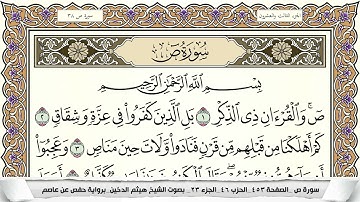 الجزء الثالث والعشرون
سورة ص ٣٨
سُورَةُ صٓ
بِسْمِ اللَّهِ الرَّحْمَٰنِ الرَّحِيمِ
صٓ ۚ وَالْقُرْءَانِ ذِي الذِّكْرِ ١ بَلِ الَّذِينَ كَفَرُوا فِي عِزَّةٍ وَشِقَاقٍ ٢
كَمْ أَهْلَكْنَا مِن قَبْلِهِم مِّن قَرْنٍ فَنَادَوا وَّلَاتَ حِينَ مَنَاصٍ ٣ وَعَجِبُوا
سورة ص _الصفحة ٤٥٣ _الحزب ٤٦ _الجزء ٢٣ _ بصوت الشيخ هيثم الدخين _برواية حفص عن عاصم